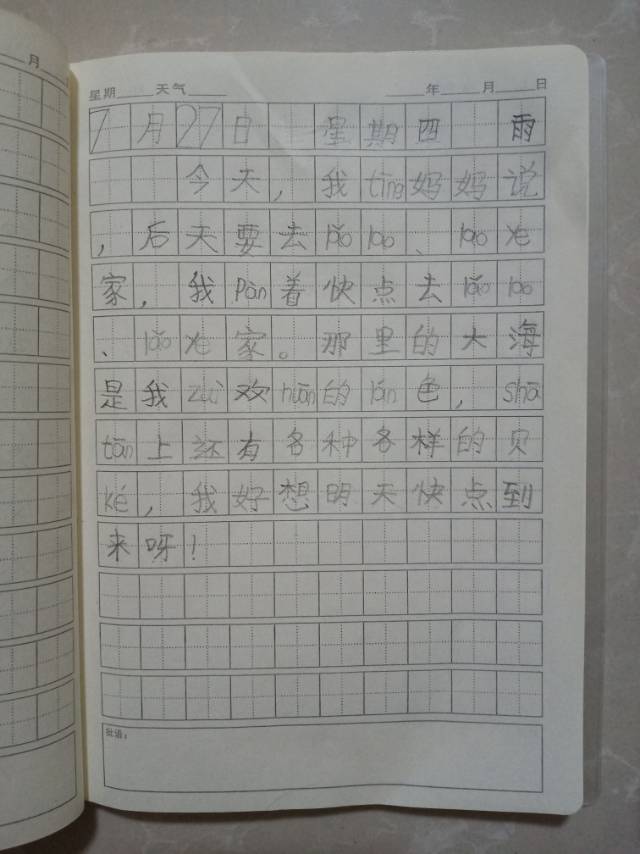 月
星期 天气 年 月 日
7月27日 星期四 雨
今天，我tīng妈妈说
，后天要去lǎo lao、lǎo ye
家，我pàn着快点去lǎo lao
、lǎo ye家。那里的大海
是我zuì欢huān的lán色，shā
tān上还有各种各样的贝
ké，我好想明天快点到
来呀！
批语：